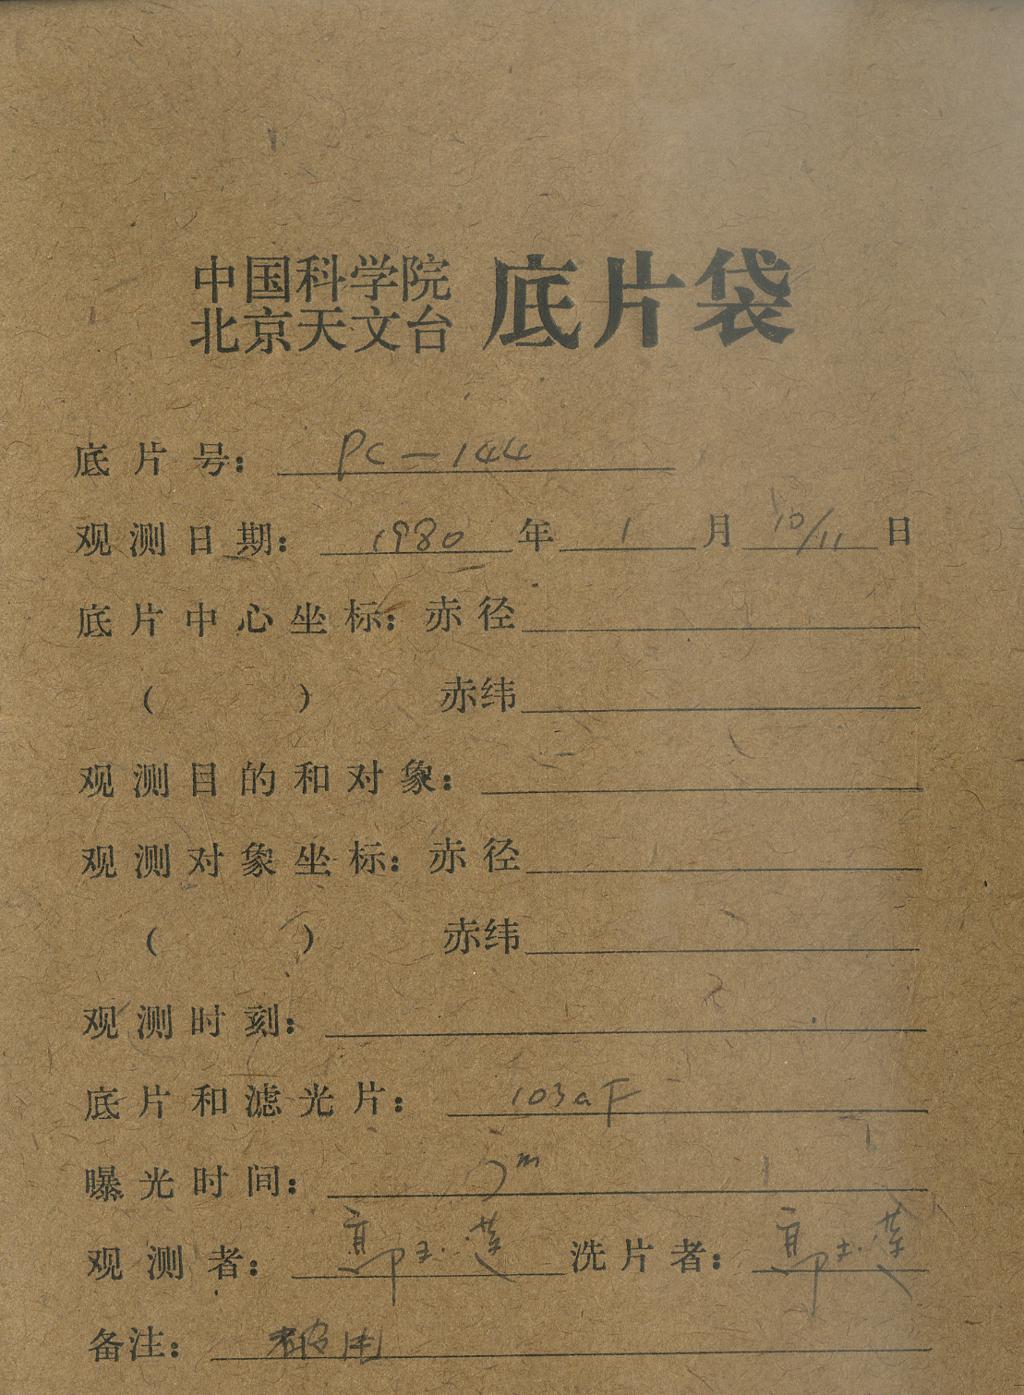 中国科学院
北京天文台 底片袋
底片号: PC-144
观测日期: 1980年 1月 10/11日
底片中心坐标: 赤径
( ) 赤纬
观测目的和对象:
观测对象坐标: 赤径
( ) 赤纬
观测时刻:
底片和滤光片: 103aF
曝光时间: m
观测者: 郭玉莲 洗片者: 郭玉莲
备注: